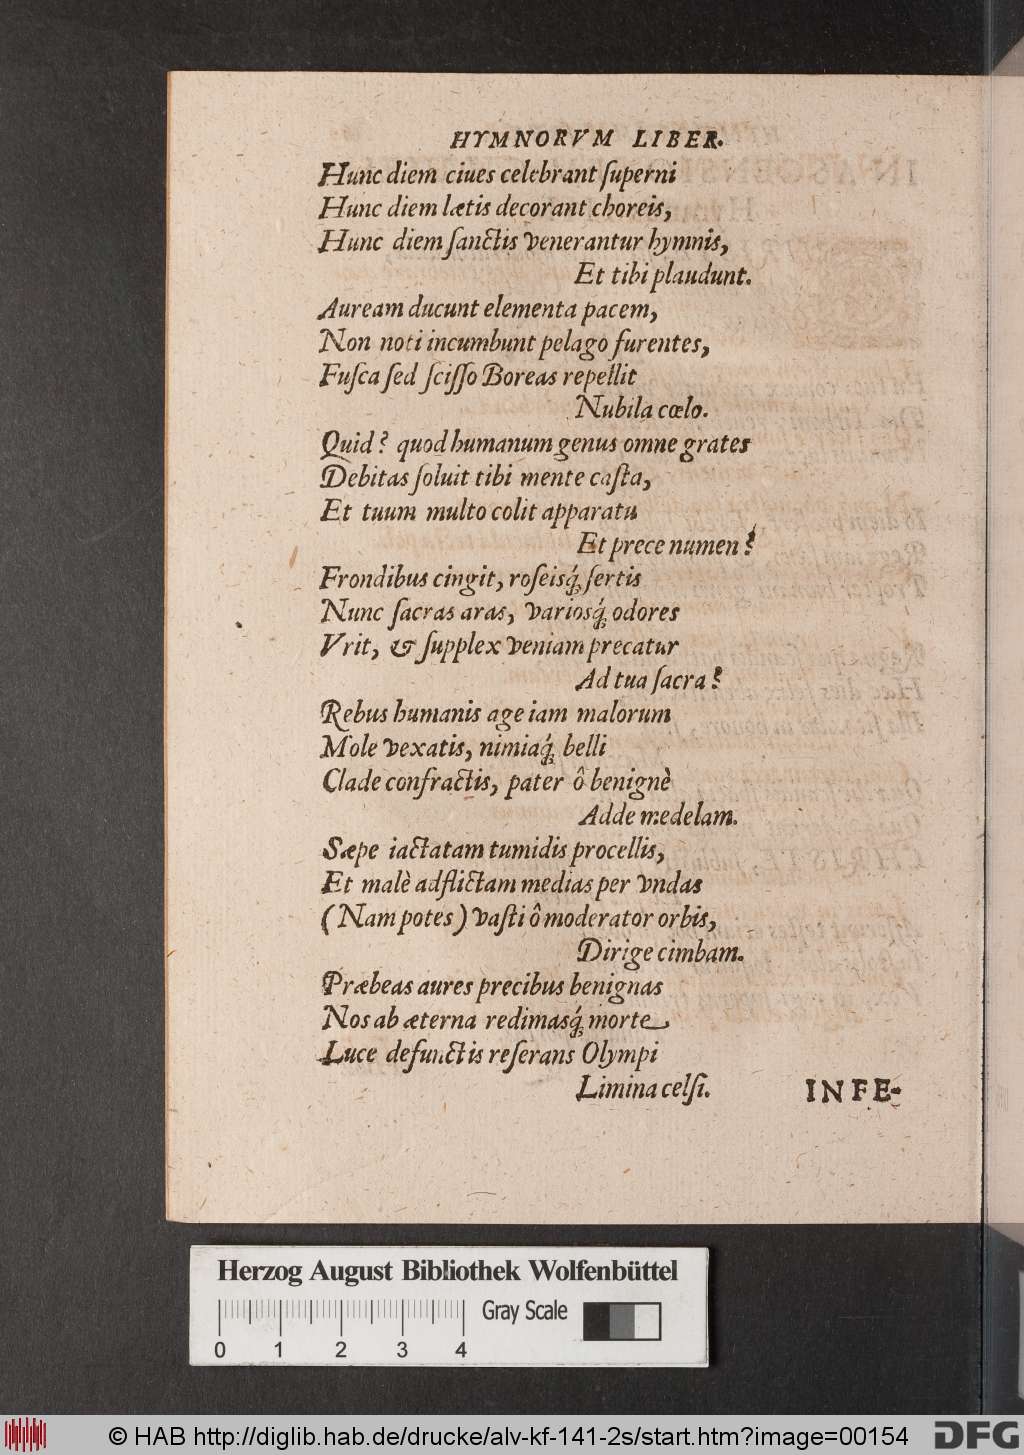 HYMNORVM LIBER.
Hunc diem ciues celebrant ſuperni
Hunc diem lætis decorant choreis,
Hunc diem ſanctis venerantur hymnis,
Et tibi plaudunt.
Auream ducunt elementa pacem,
Non noti incumbunt pelago furentes,
Fuſca ſed ſciſſo Boreas repellit
Nubila cœlo.
Quid? quod humanum genus omne grates
Debitas ſoluit tibi mente caſta,
Et tuum multo colit apparatu
Et prece numen?
Frondibus cingit, roſeisq́; ſertis
Nunc ſacras aras, variosq́; odores
Vrit, & ſupplex veniam precatur
Ad tua ſacra?
Rebus humanis age iam malorum
Mole vexatis, nimiaq́; belli
Clade confractis, pater ô benignè
Adde medelam.
Sæpe iactatam tumidis procellis,
Et malè adflictam medias per vndas
(Nam potes) vaſti ô moderator orbis,
Dirige cimbam.
Præbeas aures precibus benignas
Nos ab æterna redimasq́; morte
Luce defunctis reſerans Olympi
Limina celſi.
INFE-
Herzog August Bibliothek Wolfenbüttel
Gray Scale
0 1 2 3 4
© HAB http://diglib.hab.de/drucke/alv-kf-141-2s/start.htm?image=00154
DFG